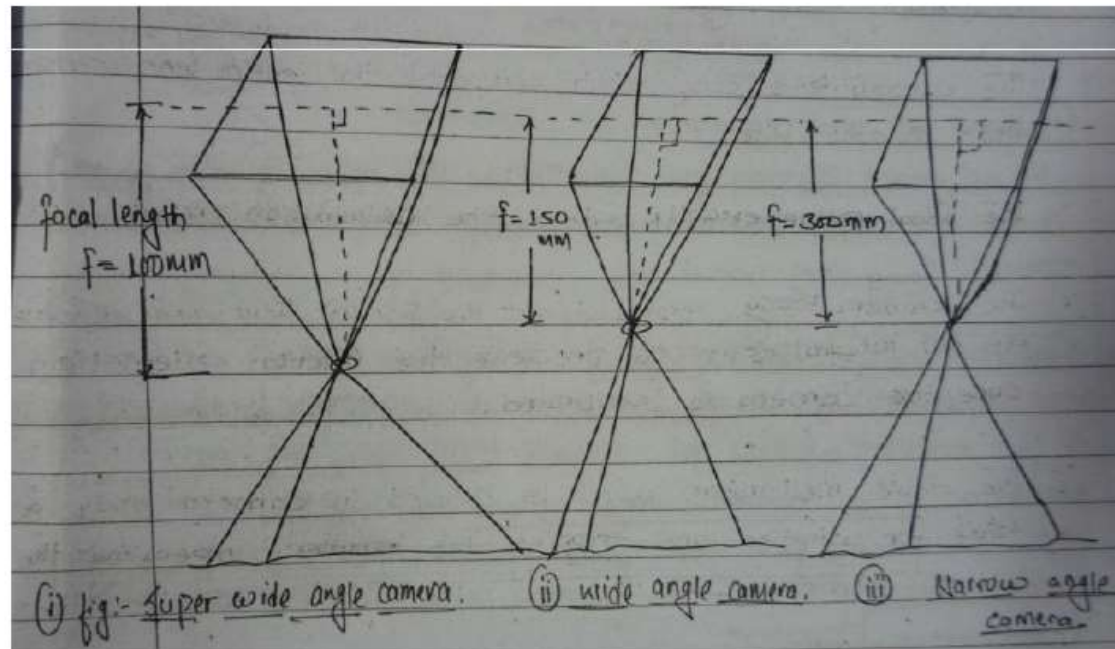 focal length
f = 100mm
f = 150
mm
f = 300mm
(i) fig:- Super wide angle camera.
(ii) wide angle camera.
(iii) Narrow angle
camera.